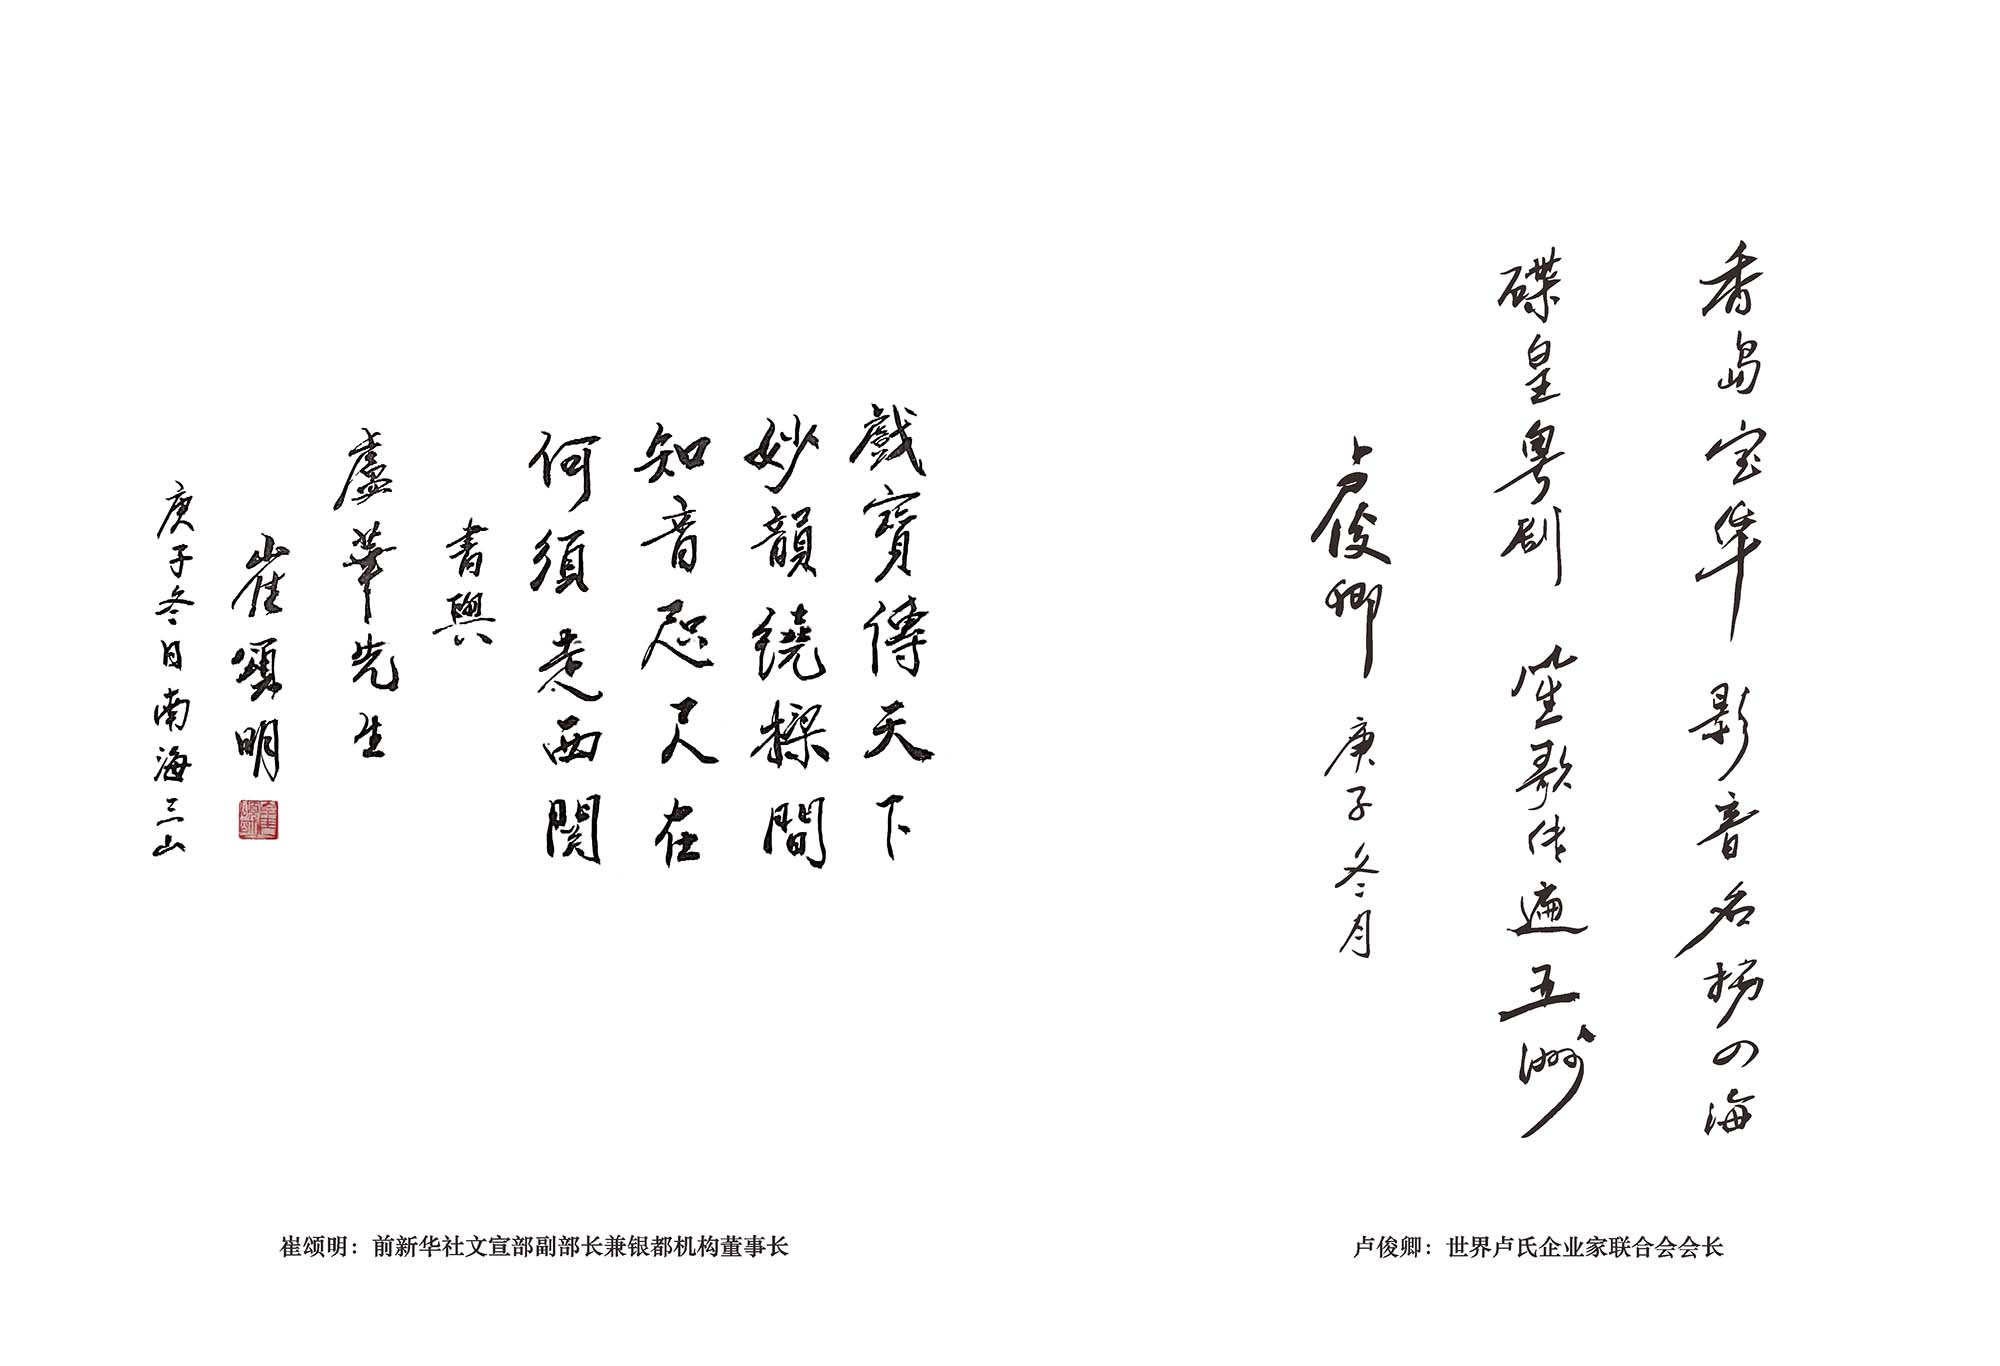 香岛宝华 影音名扬四海
碟皇粤剧 笙歌传遍五洲
卢俊卿 庚子冬月
卢俊卿：世界卢氏企业家联合会会长
戲寶傳天下
妙韻繞樑間
知音咫尺在
何須走西関
書與
盧華先生
崔頌明
庚子冬日南海三山
崔颂明：前新华社文宣部副部长兼银都机构董事长